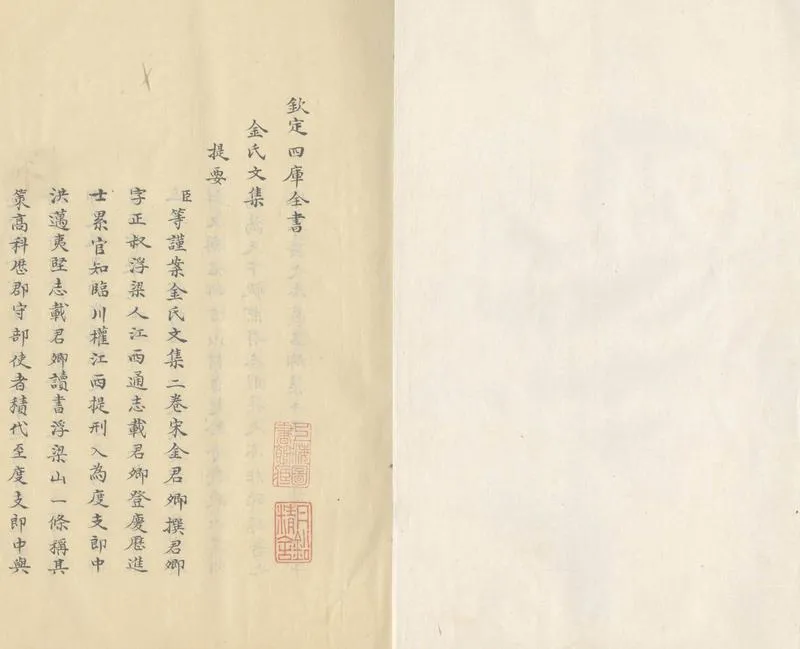 欽定四庫全書
金氏文集
提要
臣等謹案金氏文集二卷宋金君卿撰君卿
字正叔浮梁人江西通志載君卿登慶厯進
士累官知臨川權江西提刑入為度支郎中
洪邁夷堅志載君卿讀書浮梁山一條稱其
策高科厯郡守部使者積代至度支郎中與